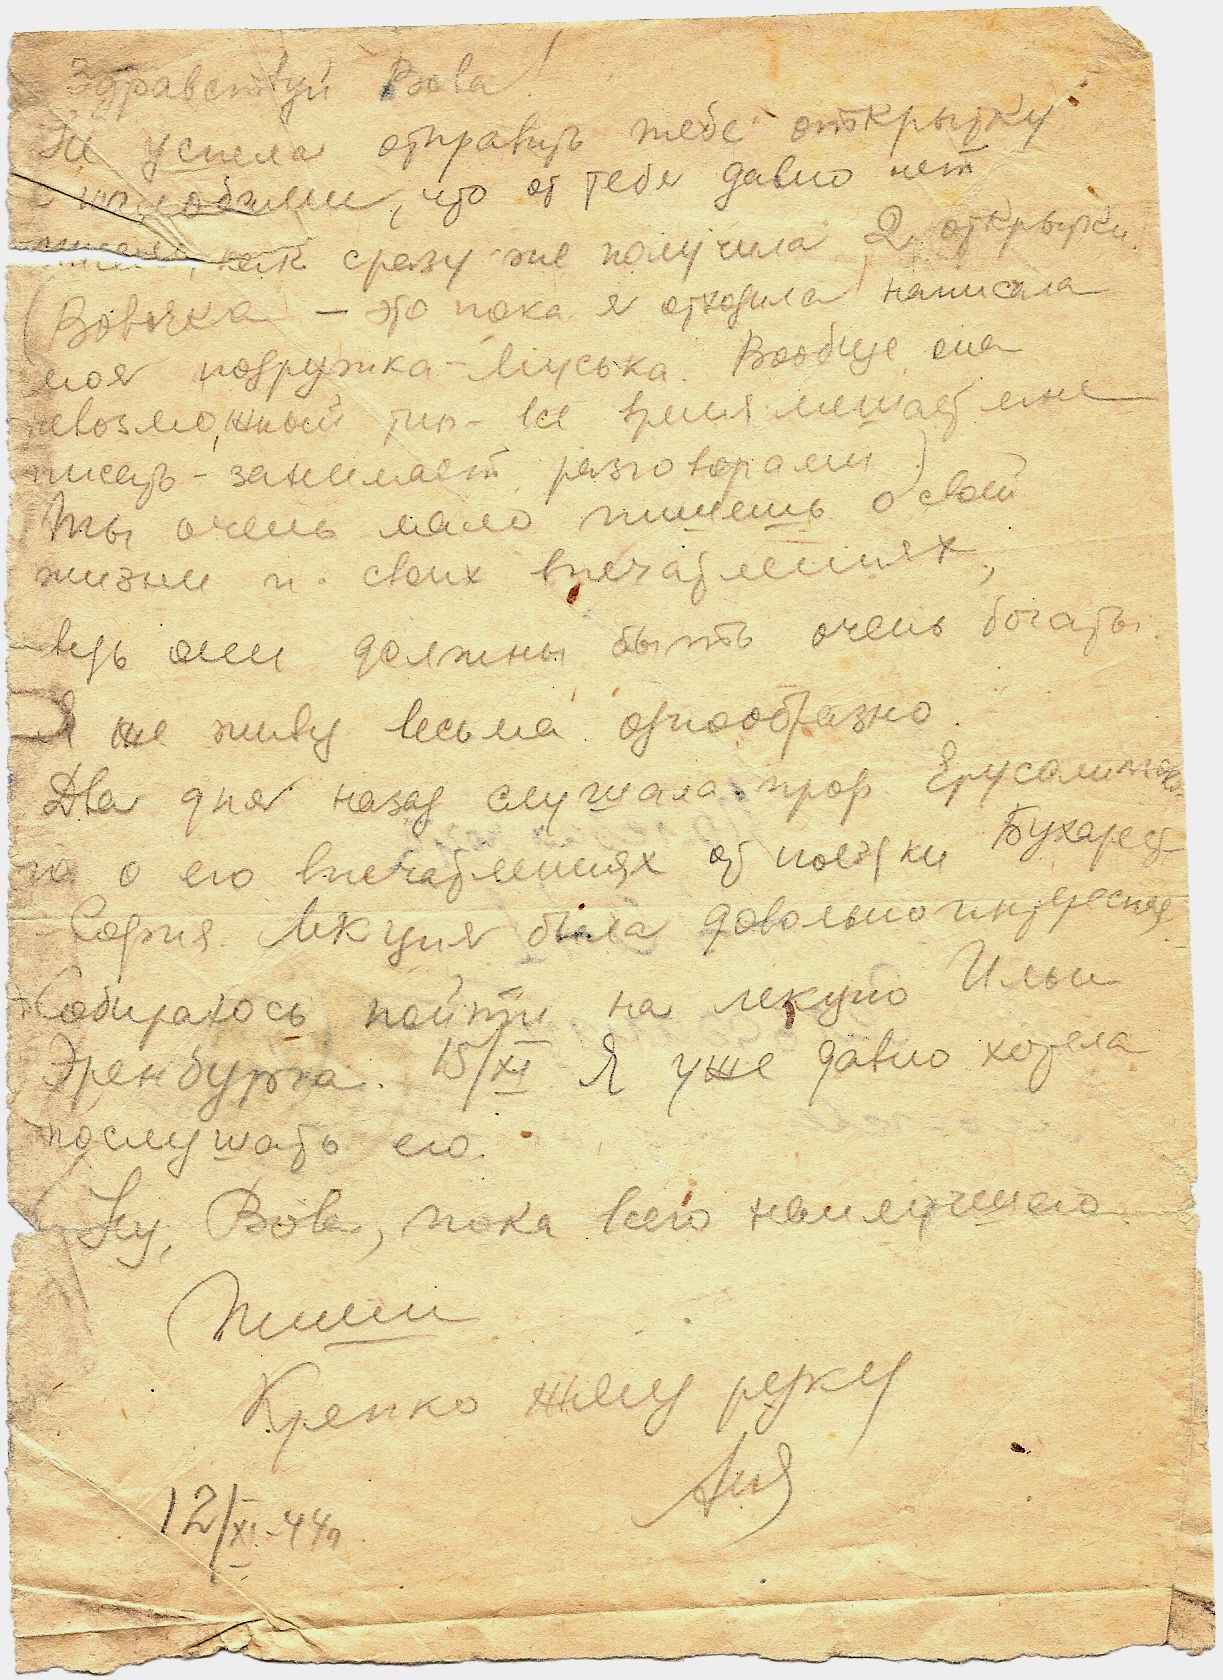 Здравствуй Вова!
Не успела отправить тебе открытку
с жалобами, что от тебя давно нет
писем, как сразу же получила 2 открытки.
(Вовочка – это пока я отходила написала
моя подружка – Муська. Вообще она
невозможный тип – всё время мешает мне
писать – занимает разговорами)
Ты очень мало пишешь о своей
жизни и своих впечатлениях,
ведь они должны быть очень богаты.
Я же живу весьма однообразно.
Два дня назад слушала проф. Ерусалимско
го о его впечатлениях от поездки Бухарест
София. Лекция была довольно интересная
Собираюсь пойти на лекцию Ильи
Эренбурга. 15/XI Я уже давно хотела
послушать его.
Ну, Вова, пока всего наилучшего.
Пиши
Крепко жму руку
Аня
12/XI-44г